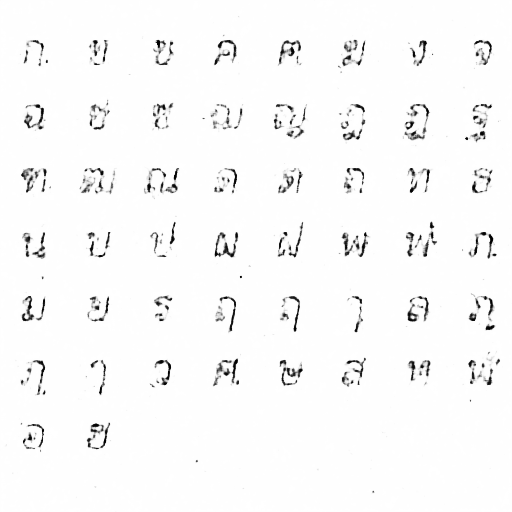 ก ข ฃ ค ฅ ฆ ง จ
ฉ ช ซ ฌ ญ ฎ ฏ ฐ
ฑ ฒ ณ ด ต ถ ท ธ
น บ ป ผ ฝ พ ฟ ภ
ม ย ร ฤ ฤ ว ล ฦ
ฦ ว ว ศ ษ ส ห ฬ
อ ฮ